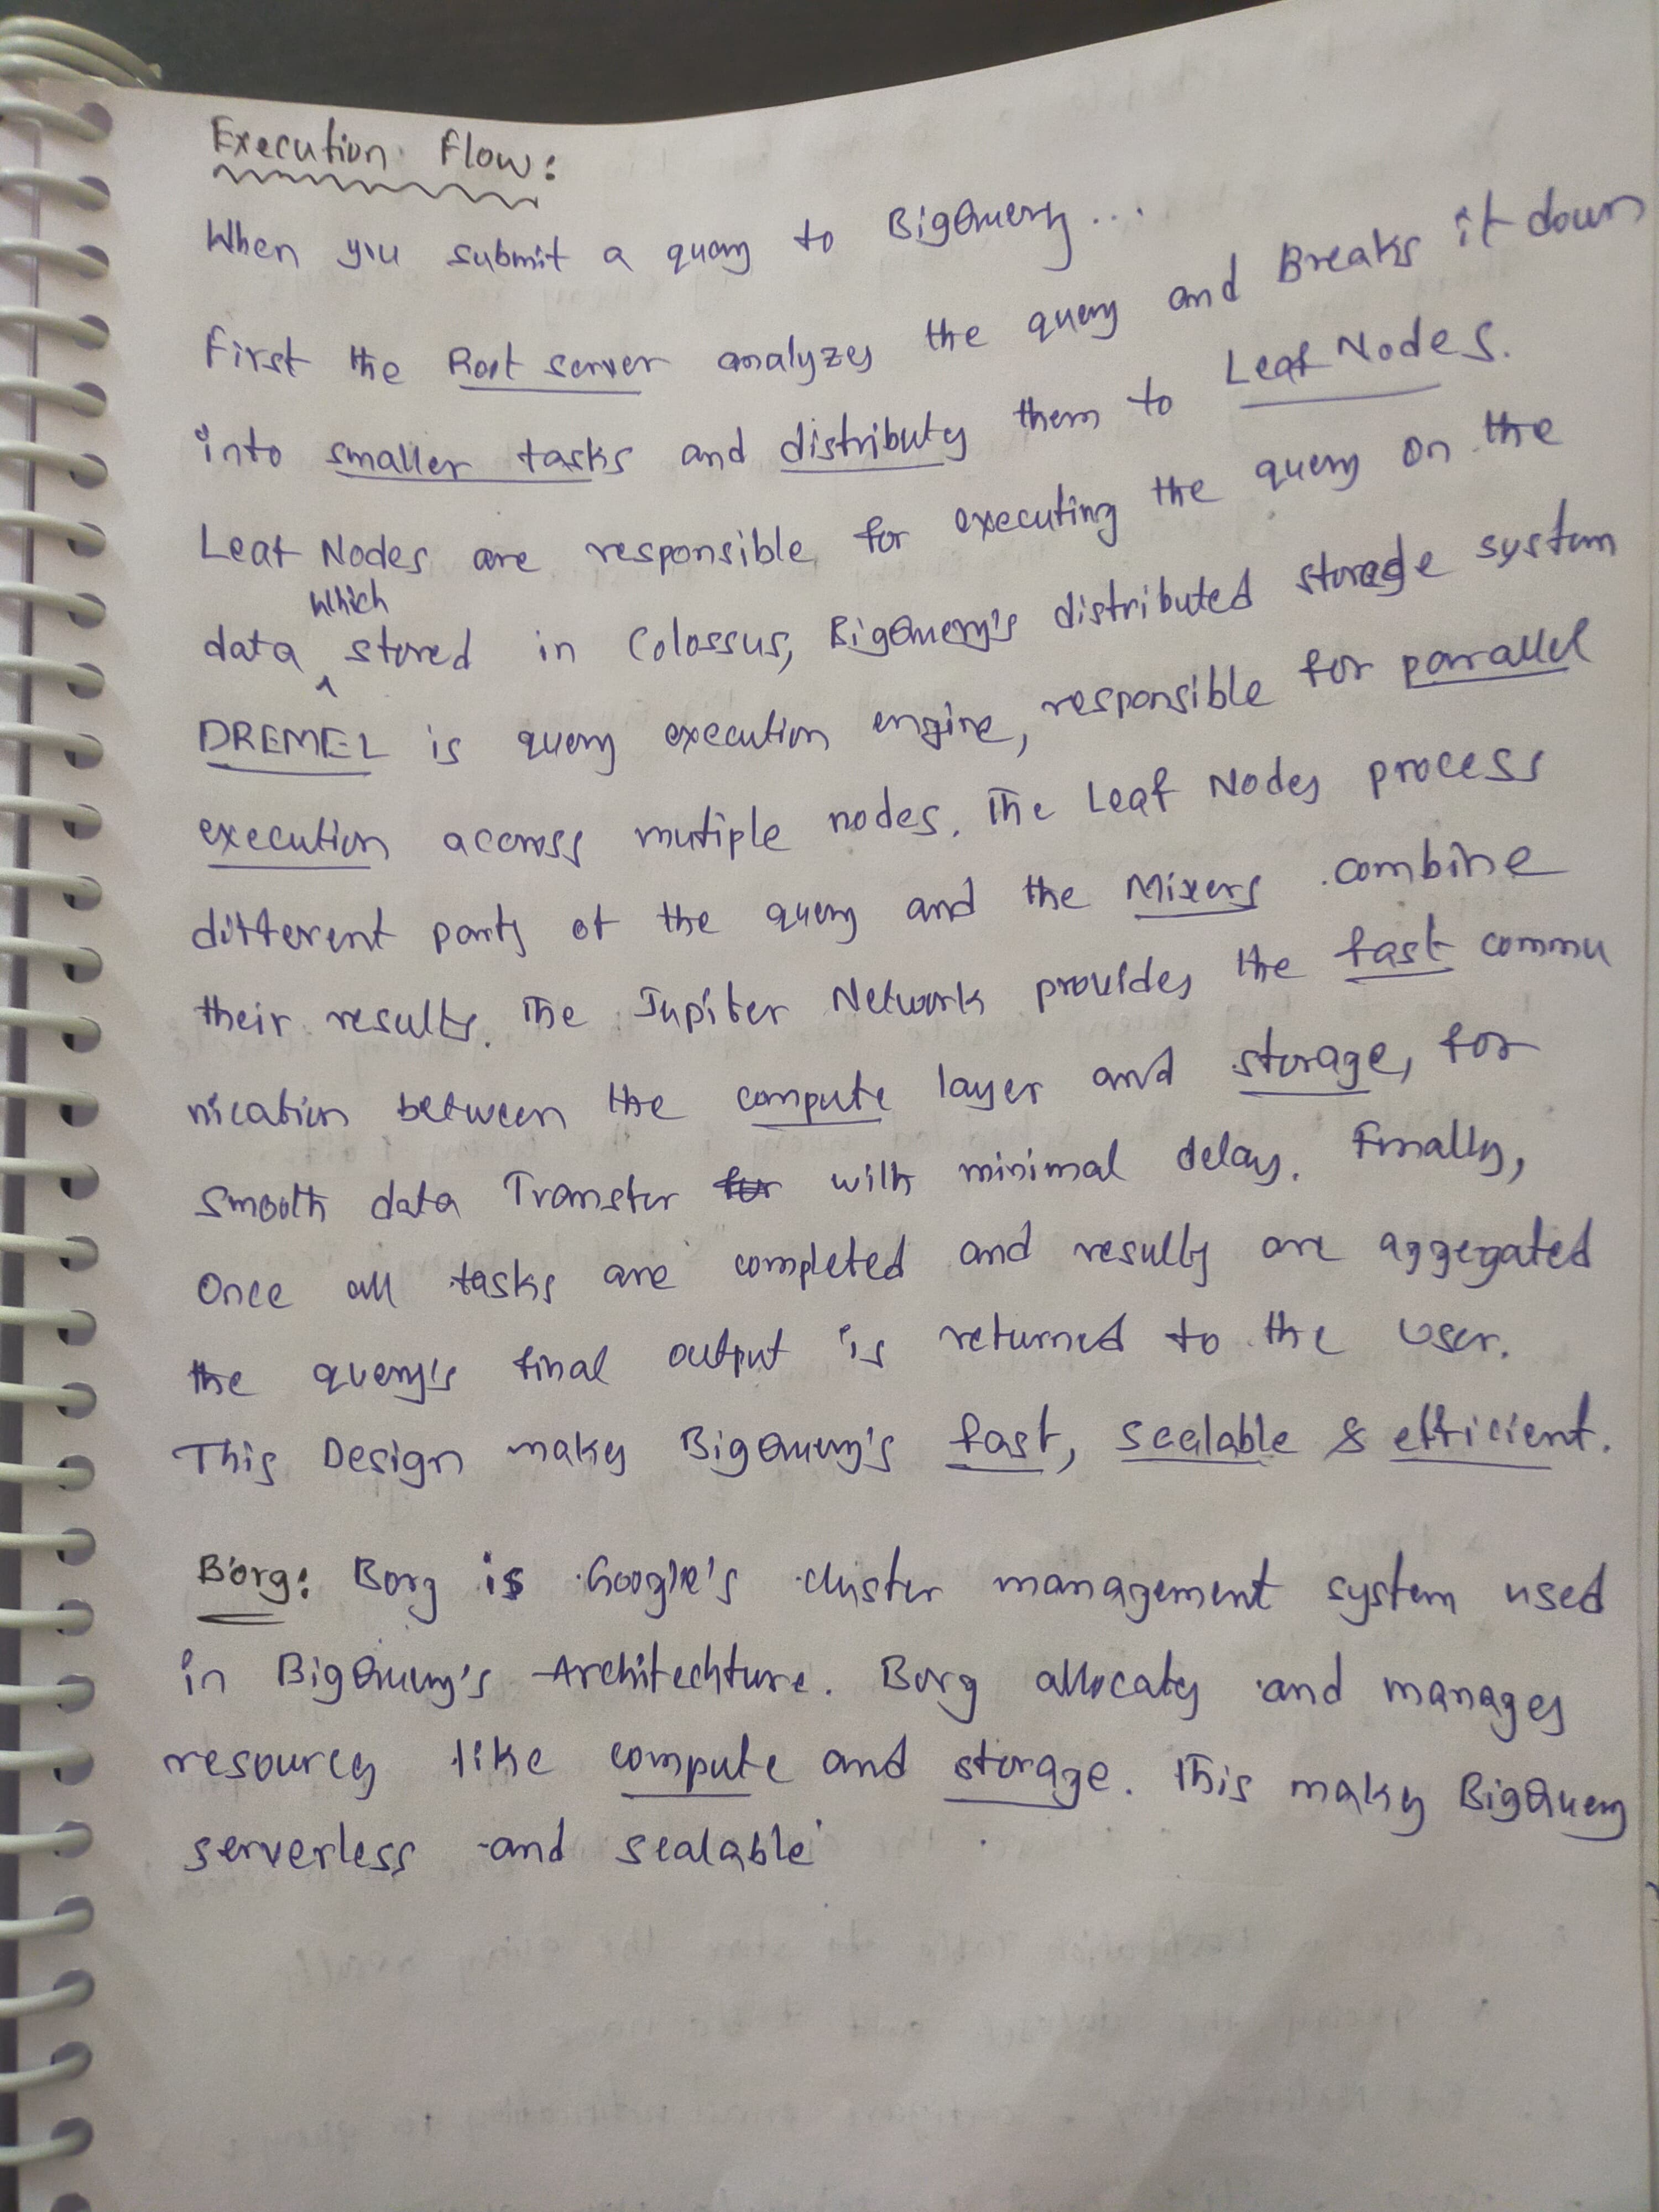 Execution Flow:
When you submit a query to BigQuery...
First the Root server analyzes the query and Breaks it down
into smaller tasks and distributes them to Leaf Nodes.
Leaf Nodes are responsible for executing the query on the
data which stored in Colossus, BigQuery's distributed storage system
DREMEL is query execution engine, responsible for parallel
execution accross mutiple nodes. The Leaf Nodes process
different parts of the query and the Mixers combine
their results. The Jupiter Network provides the fast commu
nication between the compute layer and storage, for
smooth data Transfer for with minimal delay. Finally,
Once all tasks are completed and results are aggegated
the query's final output is returned to the user.
This Design makes BigQuery's fast, scalable & efficient.
Borg: Borg is Google's cluster management system used
in BigQuery's Architechture. Borg allocates and manages
resources like compute and storage. This makes BigQuery
serverless and scalable